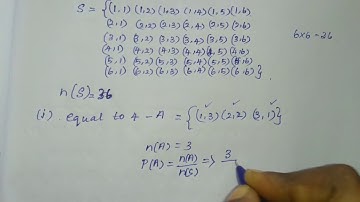 S = {(1,1) (1,2) (1,3) (1,4) (1,5) (1,6)
(2,1) (2,2) (2,3) (2,4) (2,5) (2,6)
(3,1) (3,2) (3,3) (3,4) (3,5) (3,6)
(4,1) (4,2) (4,3) (4,4) (4,5) (4,6)
(5,1) (5,2) (5,3) (5,4) (5,5) (5,6)
(6,1) (6,2) (6,3) (6,4) (6,5) (6,6)}
6x6 = 36
n(S) = 36
(i) equal to 4 - A = {(1,3) (2,2) (3,1)}
n(A) = 3
P(A) = n(A)/n(S) => 3/